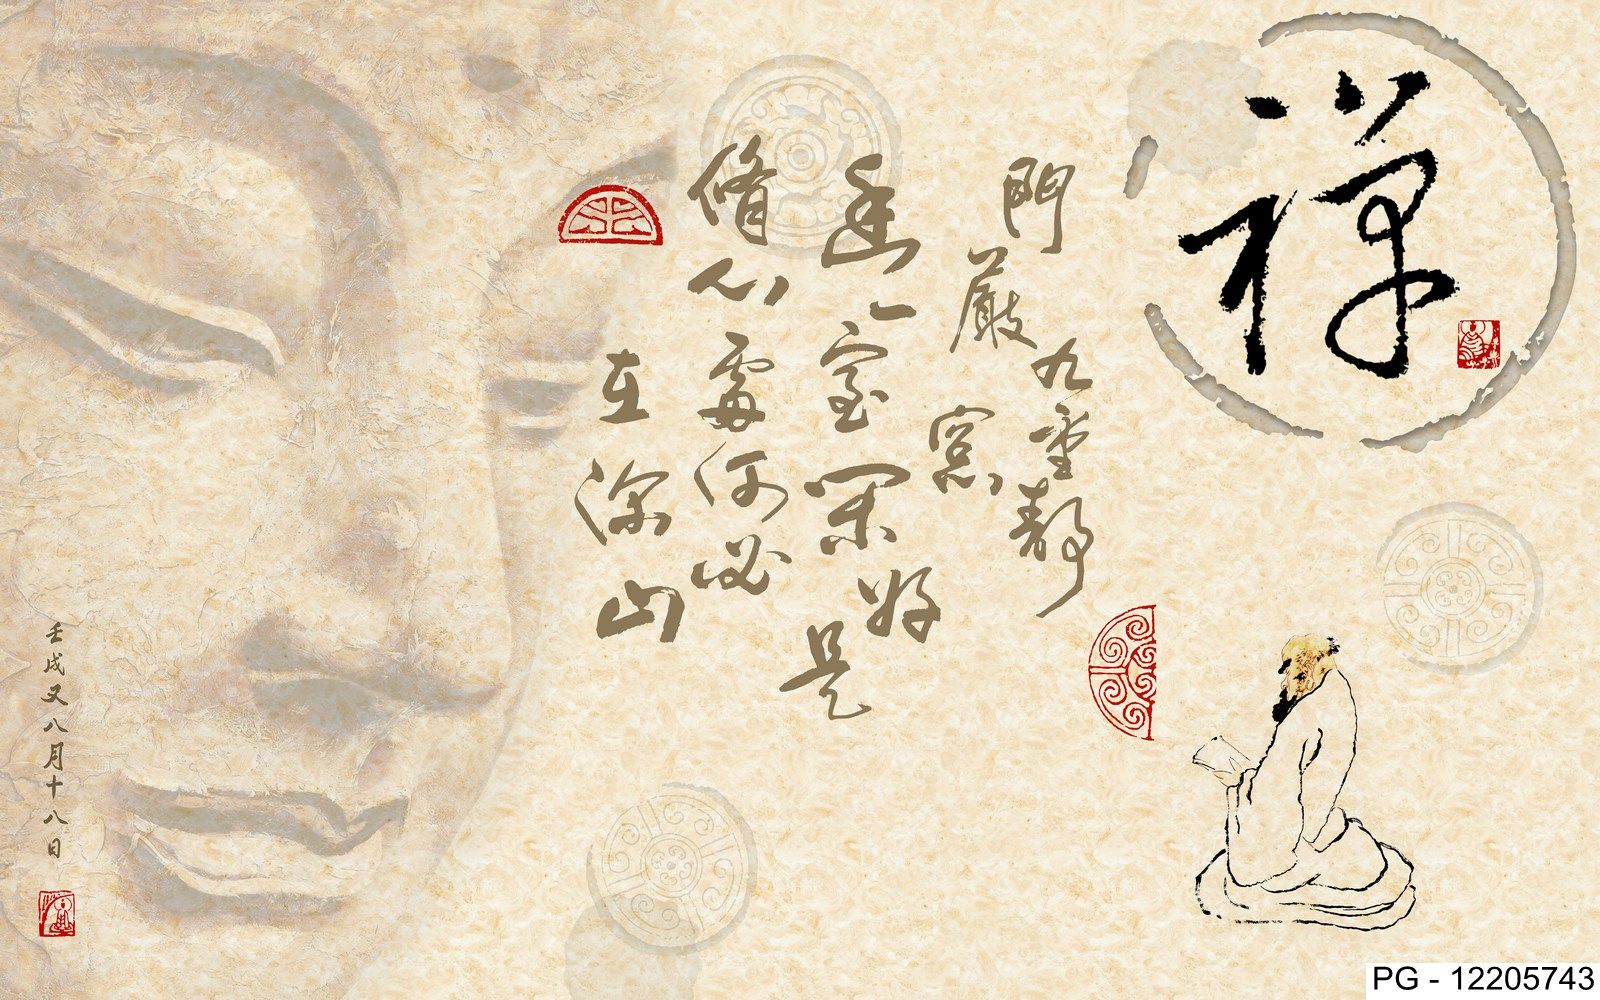 禪
門嚴九重靜窓
幽一室閑好是
脩心處何必
在深山
壬戌又八月十八日
PG - 12205743